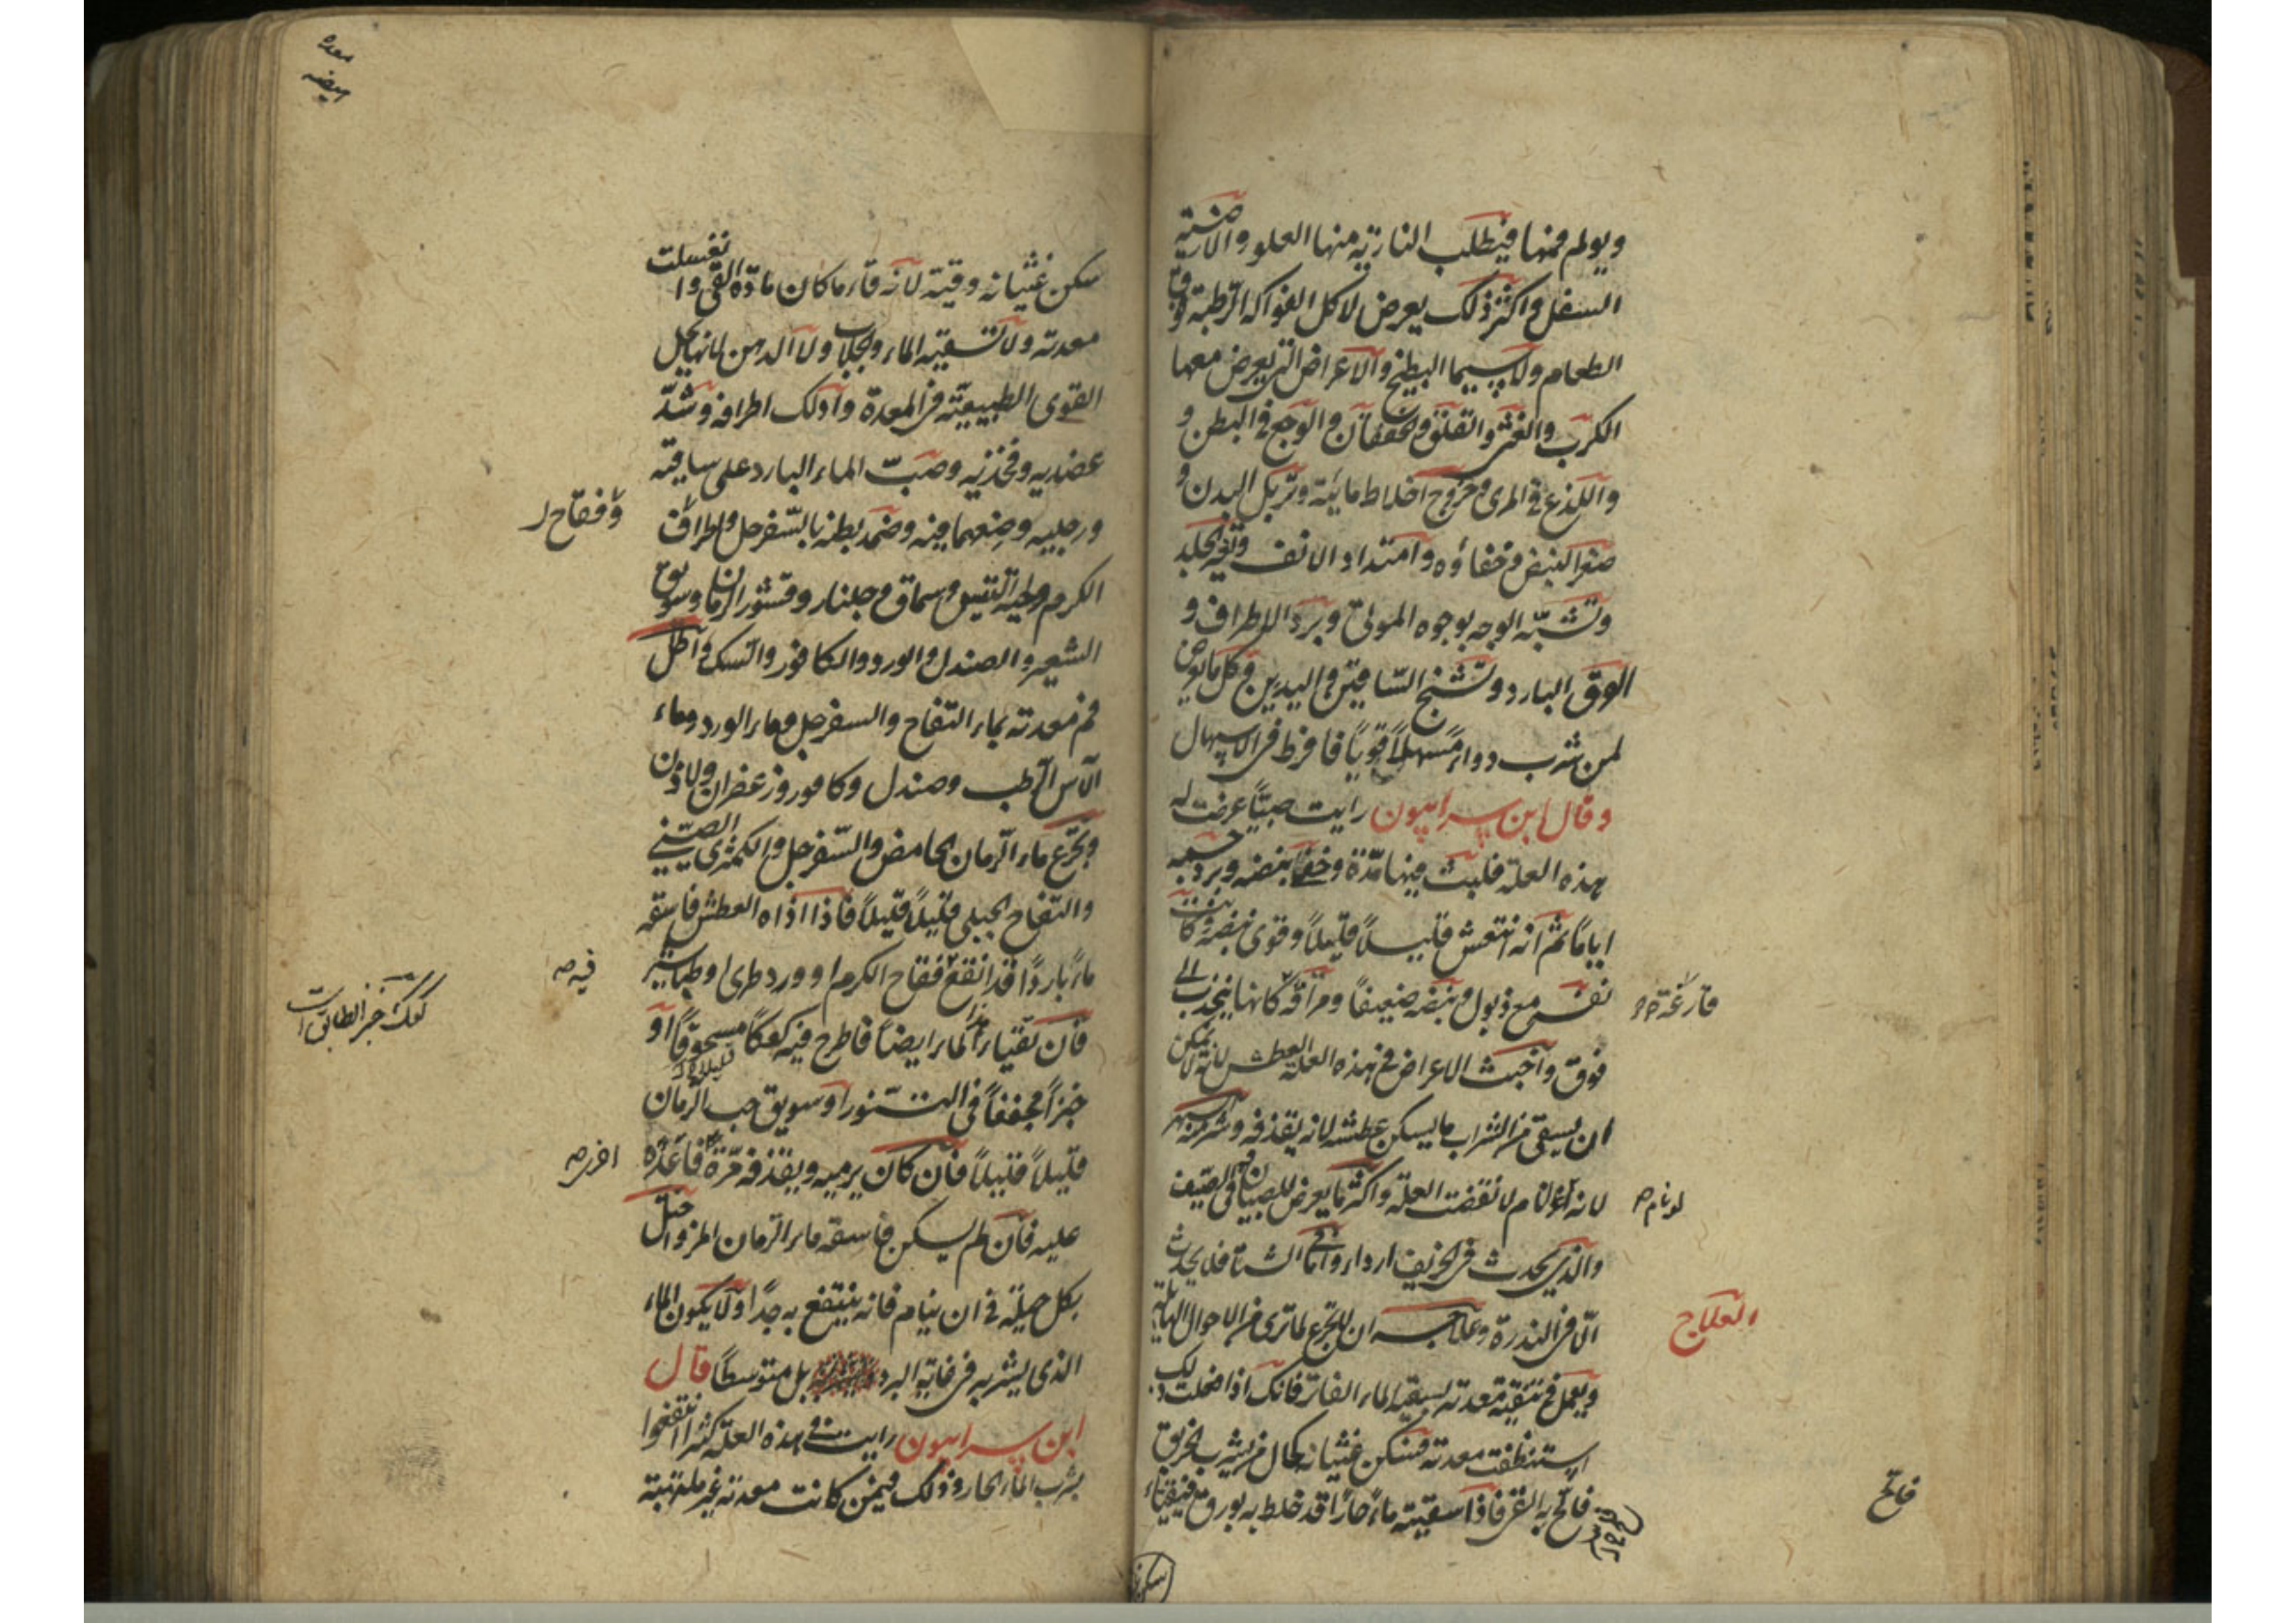 ويولم فمنها فيطلب النارية منها العلو والارضية
السفل واكثر ذلك يعرض لاكل الفواكه الرطبة وقت
الطعام ولاسيما البطيخ والاعراض التى يعرض معها
الكرب والغثى والقلق والخفقان والوجع فى البطن و
واللذع فى المرى وخروج اخلاط مائية وتربل البدن و
صغر النبض وخفاؤه وامتداد الانف وتغير الجلد
وتشبه الوجه بوجوه الموتى وبرد الاطراف و
العرق البارد وتشنج الساقين واليدين وكل ما يعرض
لمن شرب دواء مسهلا قويا فافرط فى الاسهال
وقال ابن سرابيون رايت صبيا عرضت له
هذه العلة فلبث فيها مدة وخفا نبضه وبرد جسمه
اياما ثم انه انتعش قليلا قليلا وقوى نبضه وكانت
نفس مع ذبول ونبضه ضعيفا ومراقه كانها ينجذب الى
فوق واخبث الاعراض فى هذه العلة العطش لانه لا يمكن
ان يسقى من الشراب ما يسكن عطشه لانه يقذفه وشر منه السهر
لانه لو نام لانقضت العلة واكثر ما يعرض للصبيان وفى الصيف
والذى يحدث فى الخريف ارداء واما فى الشتاء فلا يحدث
الا فى الندرة وعلاجه ان لا تجزع لما ترى من الاحوال الهائلة
ويعمل فى تنقية معدته بسقيه الماء الفاتر فانك اذا فعلت ذلك
استنظفت معدته فسكن غثيانه كحال من يشرب الخربق
فالح به القى فاذا سقيته ماء حارا قد خلط به بورق فيقياء
لو نام ص
العلاج
فالح
معده
الهيضه
سكن غثيانه وقيئه لانه قاء ما كان مادة القى وانغسلت
معدته ولا تسقيه الماء والجلاب ولا الدهن لانها يحل
القوى الطبيعية فى المعدة وادلك اطرافه وشد
عضديه وفخذيه وصب الماء البارد على ساقيه
ورجليه وضعهما فيه وضمد بطنه بالسفرجل واطراف
الكرم ولحية التيس وسماق وجلنار وقشور الرمان وسويق
الشعير والصندل والورد والكافور والسك واطل
فم معدته بماء التفاح والسفرجل وماء الورد وماء
الآس الرطب وصندل وكافور وزعفران ولاذن
وجرع ماء الرمان الحامض والسفرجل والكمثرى الصينى
والتفاح الجبلى قليلا قليلا فاذا اذاه العطش فاسقه
ماء باردا قد انقع فقاح الكرم او ورد طرى او طباشير
فان تقياء الماء ايضا فاطرح فيه كعكا مسحوقا او
خبزا مجففا فى التنور او سويق حب الرمان
قليلا قليلا فان كان يرميه ويقذفه مرة فاعده
عليه فان لم يسكن فاسقه ماء الرمان المز واحتل
بكل حيلة فى ان ينام فانه ينتفع به جدا ولا يكون الماء
الذى يشربه فى غاية البرد بل متوسطا قال
ابن سرابيون رايت فى هذه العلة كثيرا انتفعوا
بشرب الماء الحار وذلك فيمن كانت معدته غير ملتهبة
وفقاح
فيه ص
اخرى ص